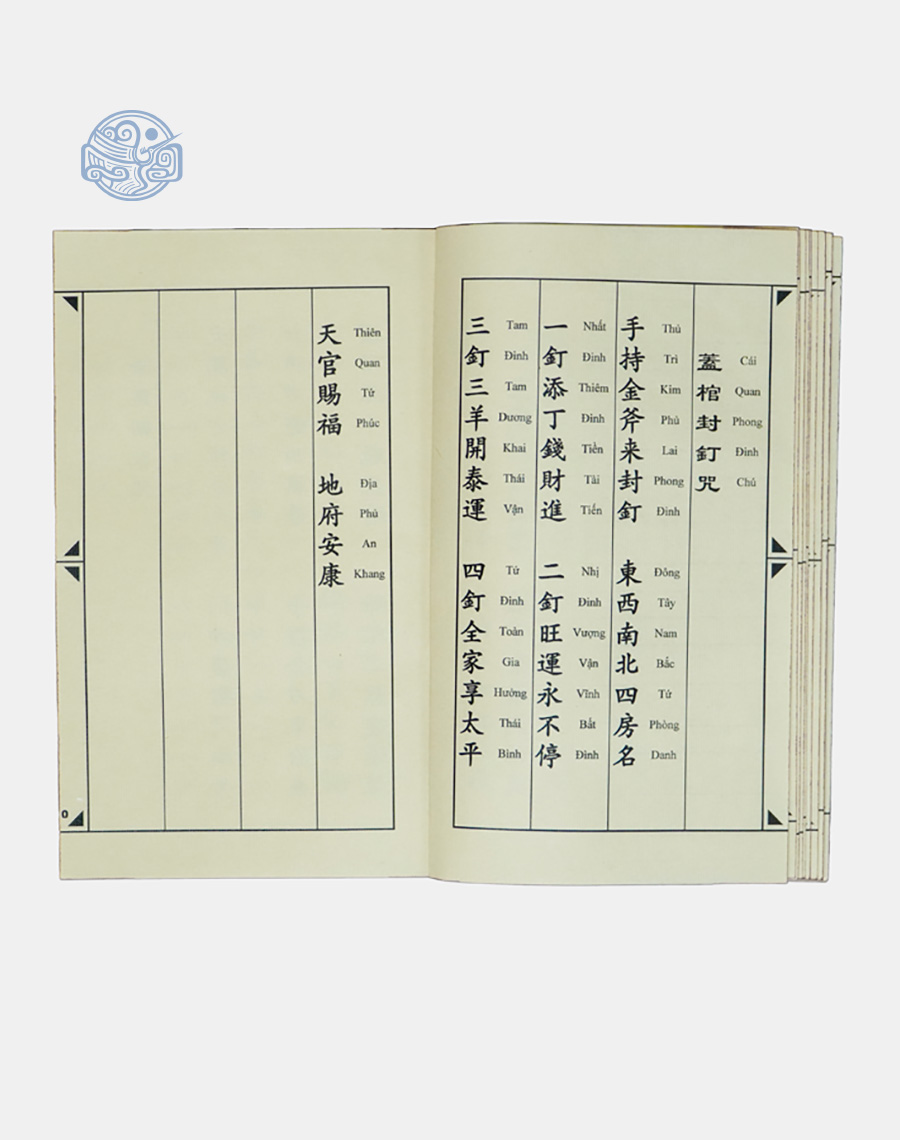 蓋棺封釘咒
Cái Quan Phong Đinh Chú
手持金斧来封釘
Thủ Trì Kim Phủ Lai Phong Đinh
東西南北四房名
Đông Tây Nam Bắc Tứ Phòng Danh
一釘添丁錢財進
Nhất Đinh Thiêm Đinh Tiền Tài Tiến
二釘旺運永不停
Nhị Đinh Vượng Vận Vĩnh Bất Đình
三釘三羊開泰運
Tam Đinh Tam Dương Khai Thái Vận
四釘全家享太平
Tứ Đinh Toàn Gia Hưởng Thái Bình
天官賜福
Thiên Quan Tứ Phúc
地府安康
Địa Phủ An Khang
0